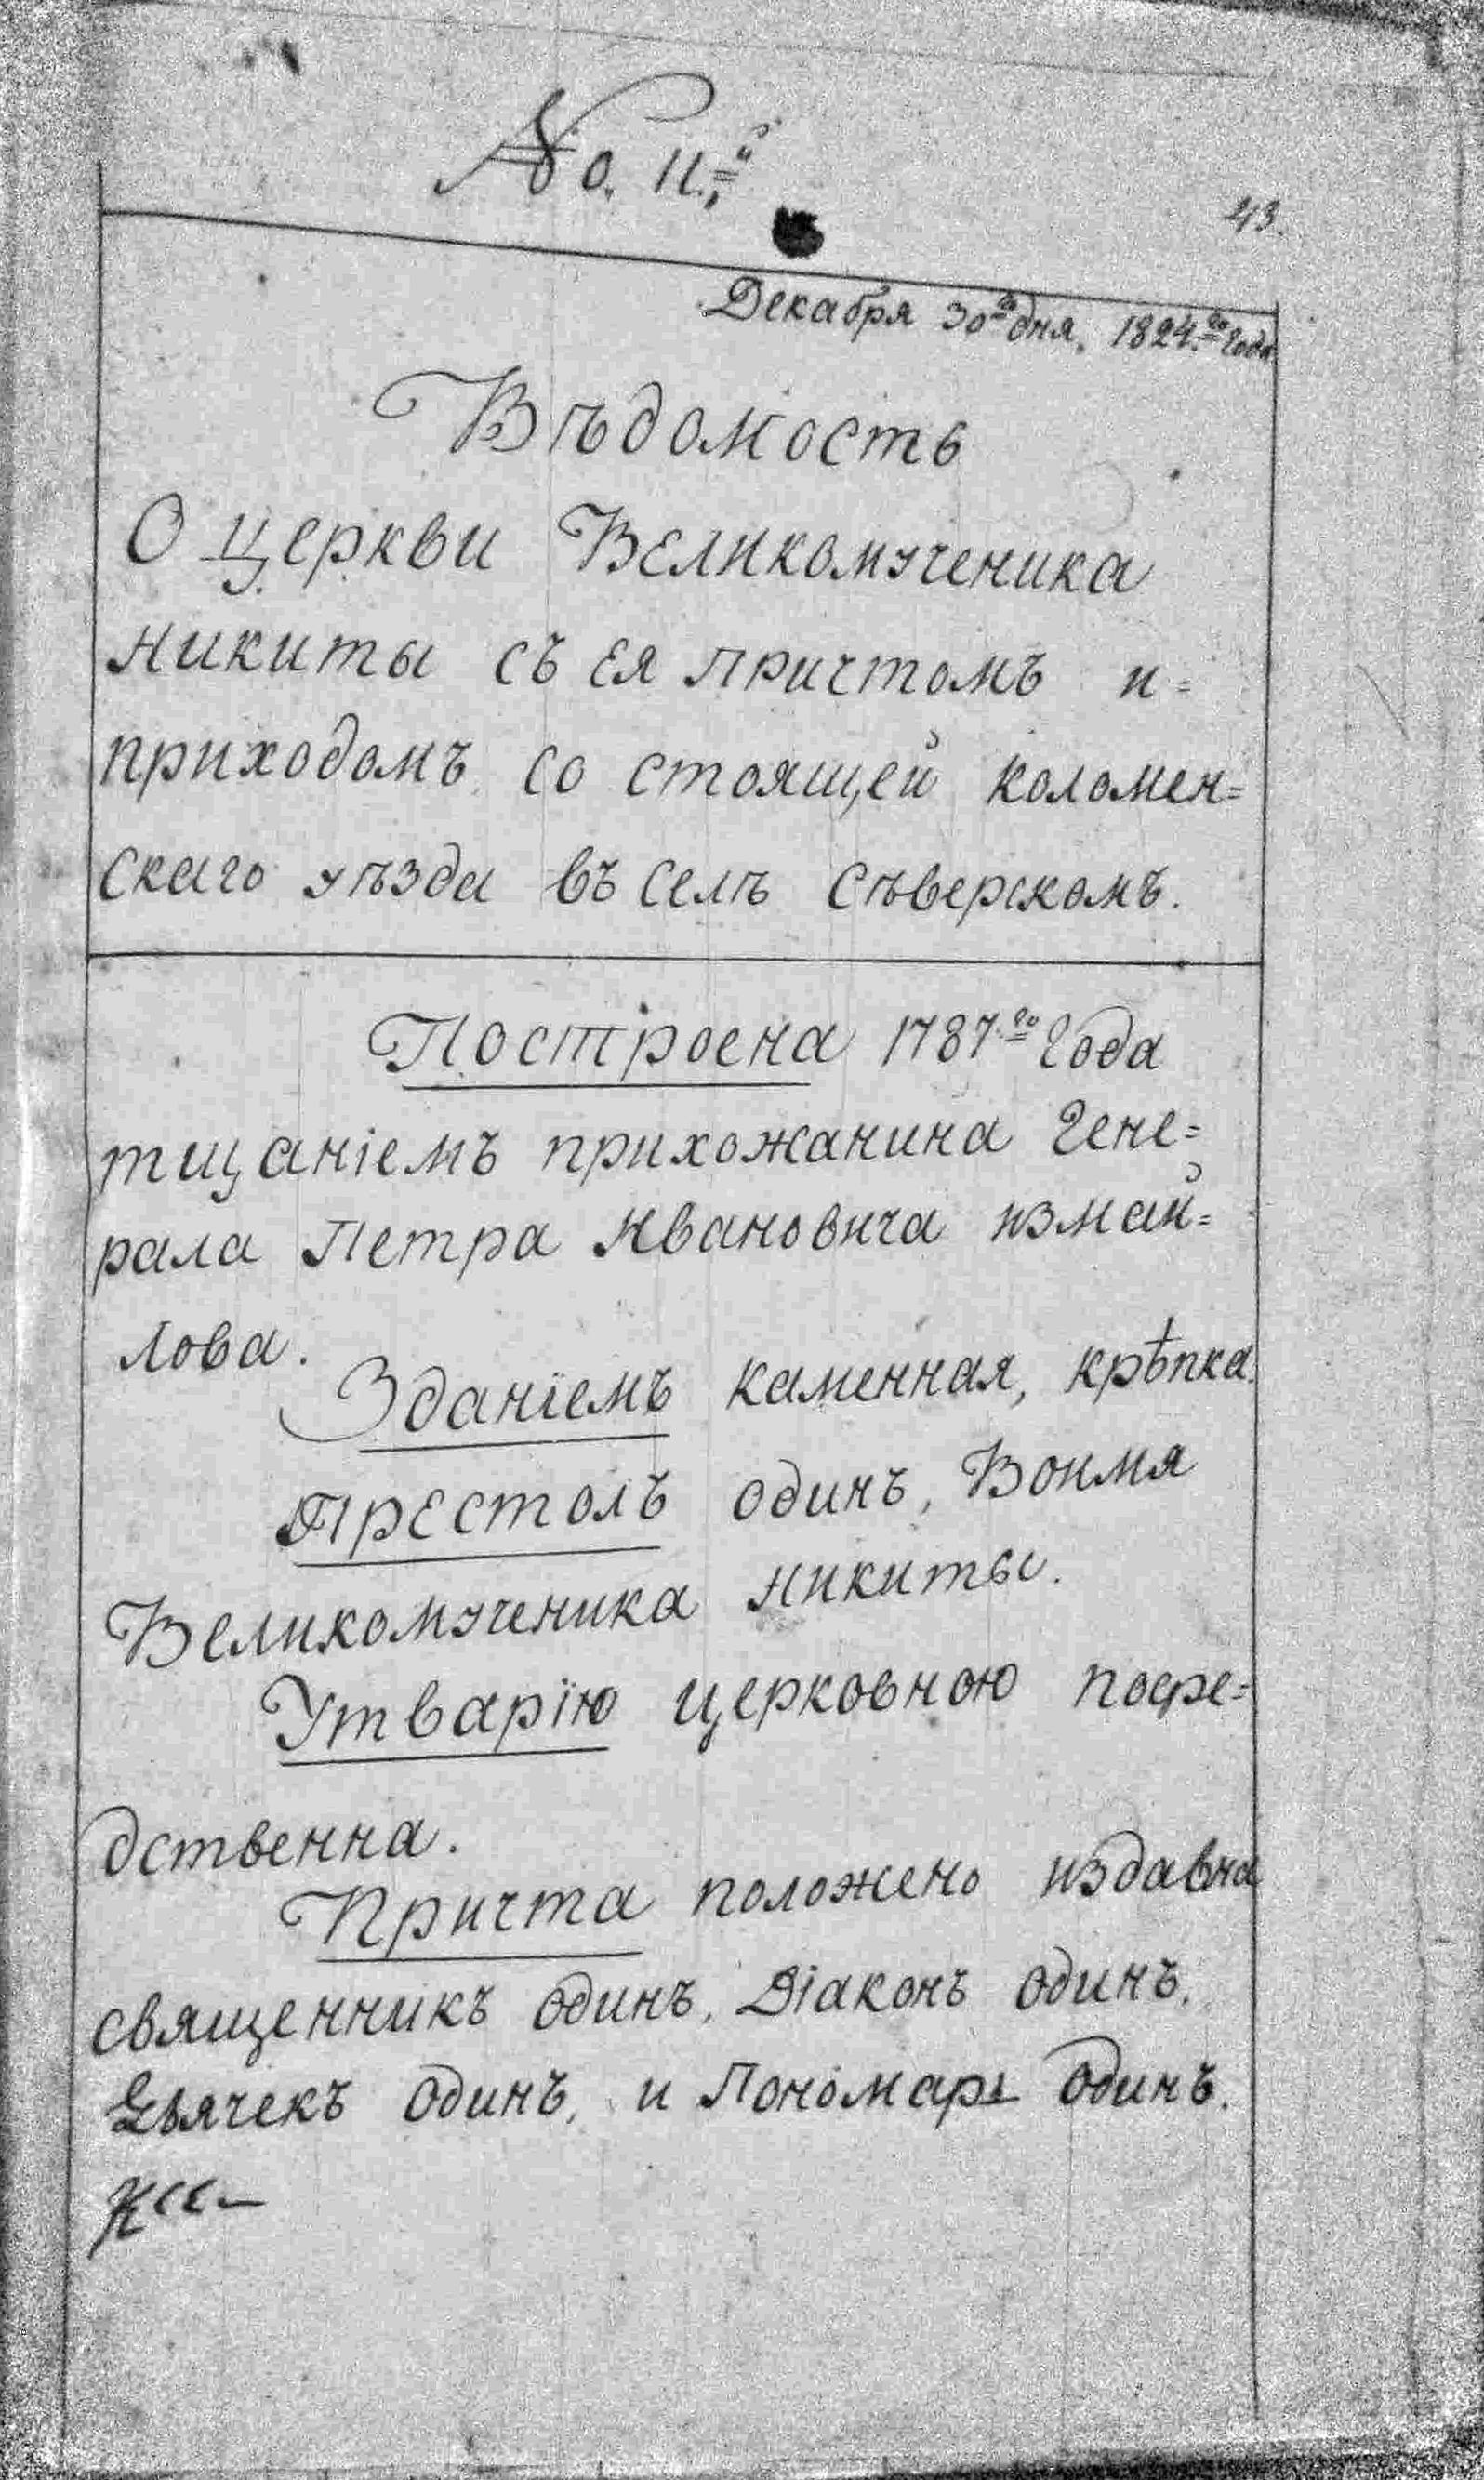 No. 11.й
43.
Декабря 30го дня, 1824.го года
Вѣдомость
О церкви Великомученика
Никиты съ ея причтомъ и=
приходомъ со стоящей коломен=
скаго уѣзда въ селѣ Сѣверскомъ.
Построена 1787.го года
тщаніемъ прихожанина Гене=
рала Петра Ивановича измай=
лова.
Зданіемъ каменная, крѣпка.
Престолъ одинъ, Воимя
Великомученика Никиты.
Утварїю церковною посре=
дственна.
Причта положено издавна
священникъ одинъ, Дїаконъ одинъ.
Дьячекъ одинъ, и Пономарь одинъ.